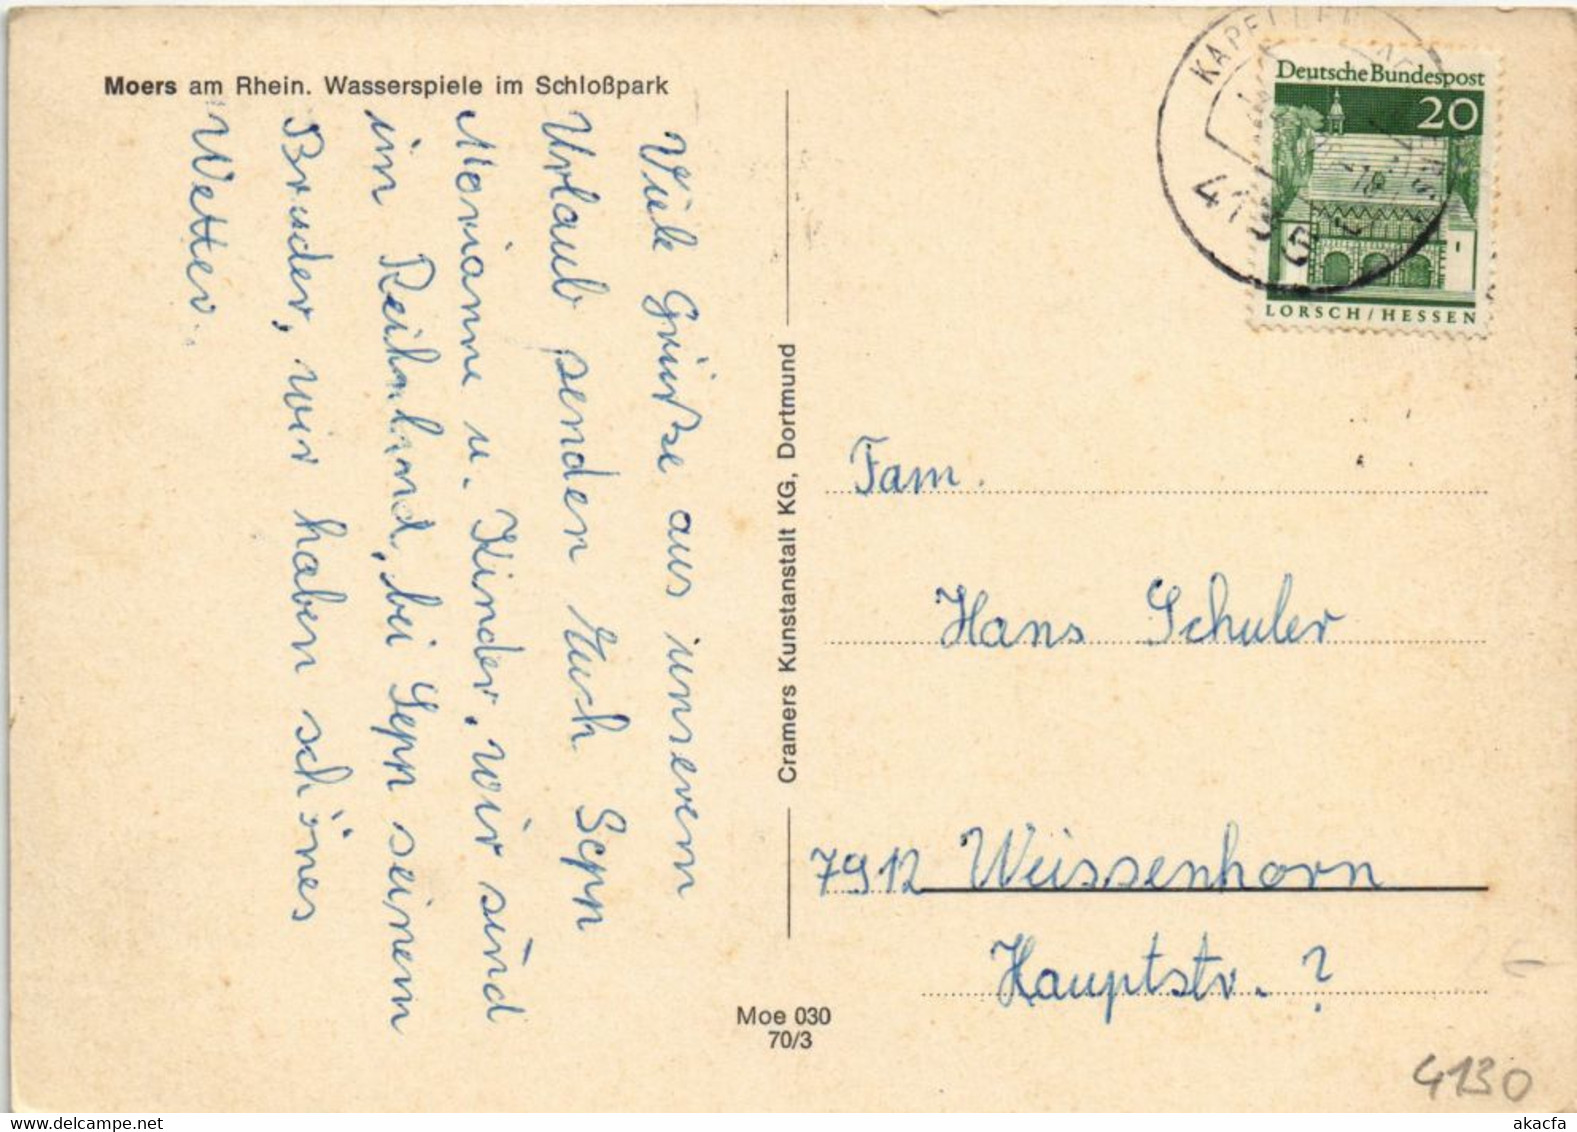 Moers am Rhein. Wasserspiele im Schloßpark
Viele Grüße aus unserem
Urlaub senden Euch Sepp
Marianne u. Kinder, wir sind
im Reihnland, bei Sepp seinem
Bruder, wir haben schönes
Wetter.
Cramers Kunstanstalt KG, Dortmund
Moe 030
70/3
Deutsche Bundespost
20
LORSCH/HESSEN
KAPELLEN
Fam.
Hans Schuler
7912 Weissenhorn
Hauptstr. ?
4130
www.delcampe.net
akacfa